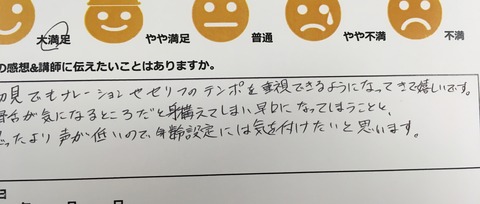 大満足 やや満足 普通 やや不満 不満
の感想&講師に伝えたいことはありますか。
初見でもナレーションやセリフのテンポを重視できるようになってきて嬉しいです。
が気になるところだと身構えてしまい、早口になってしまうことと、
思ったより声が低いので、年齢設定には気を付けたいと思います。